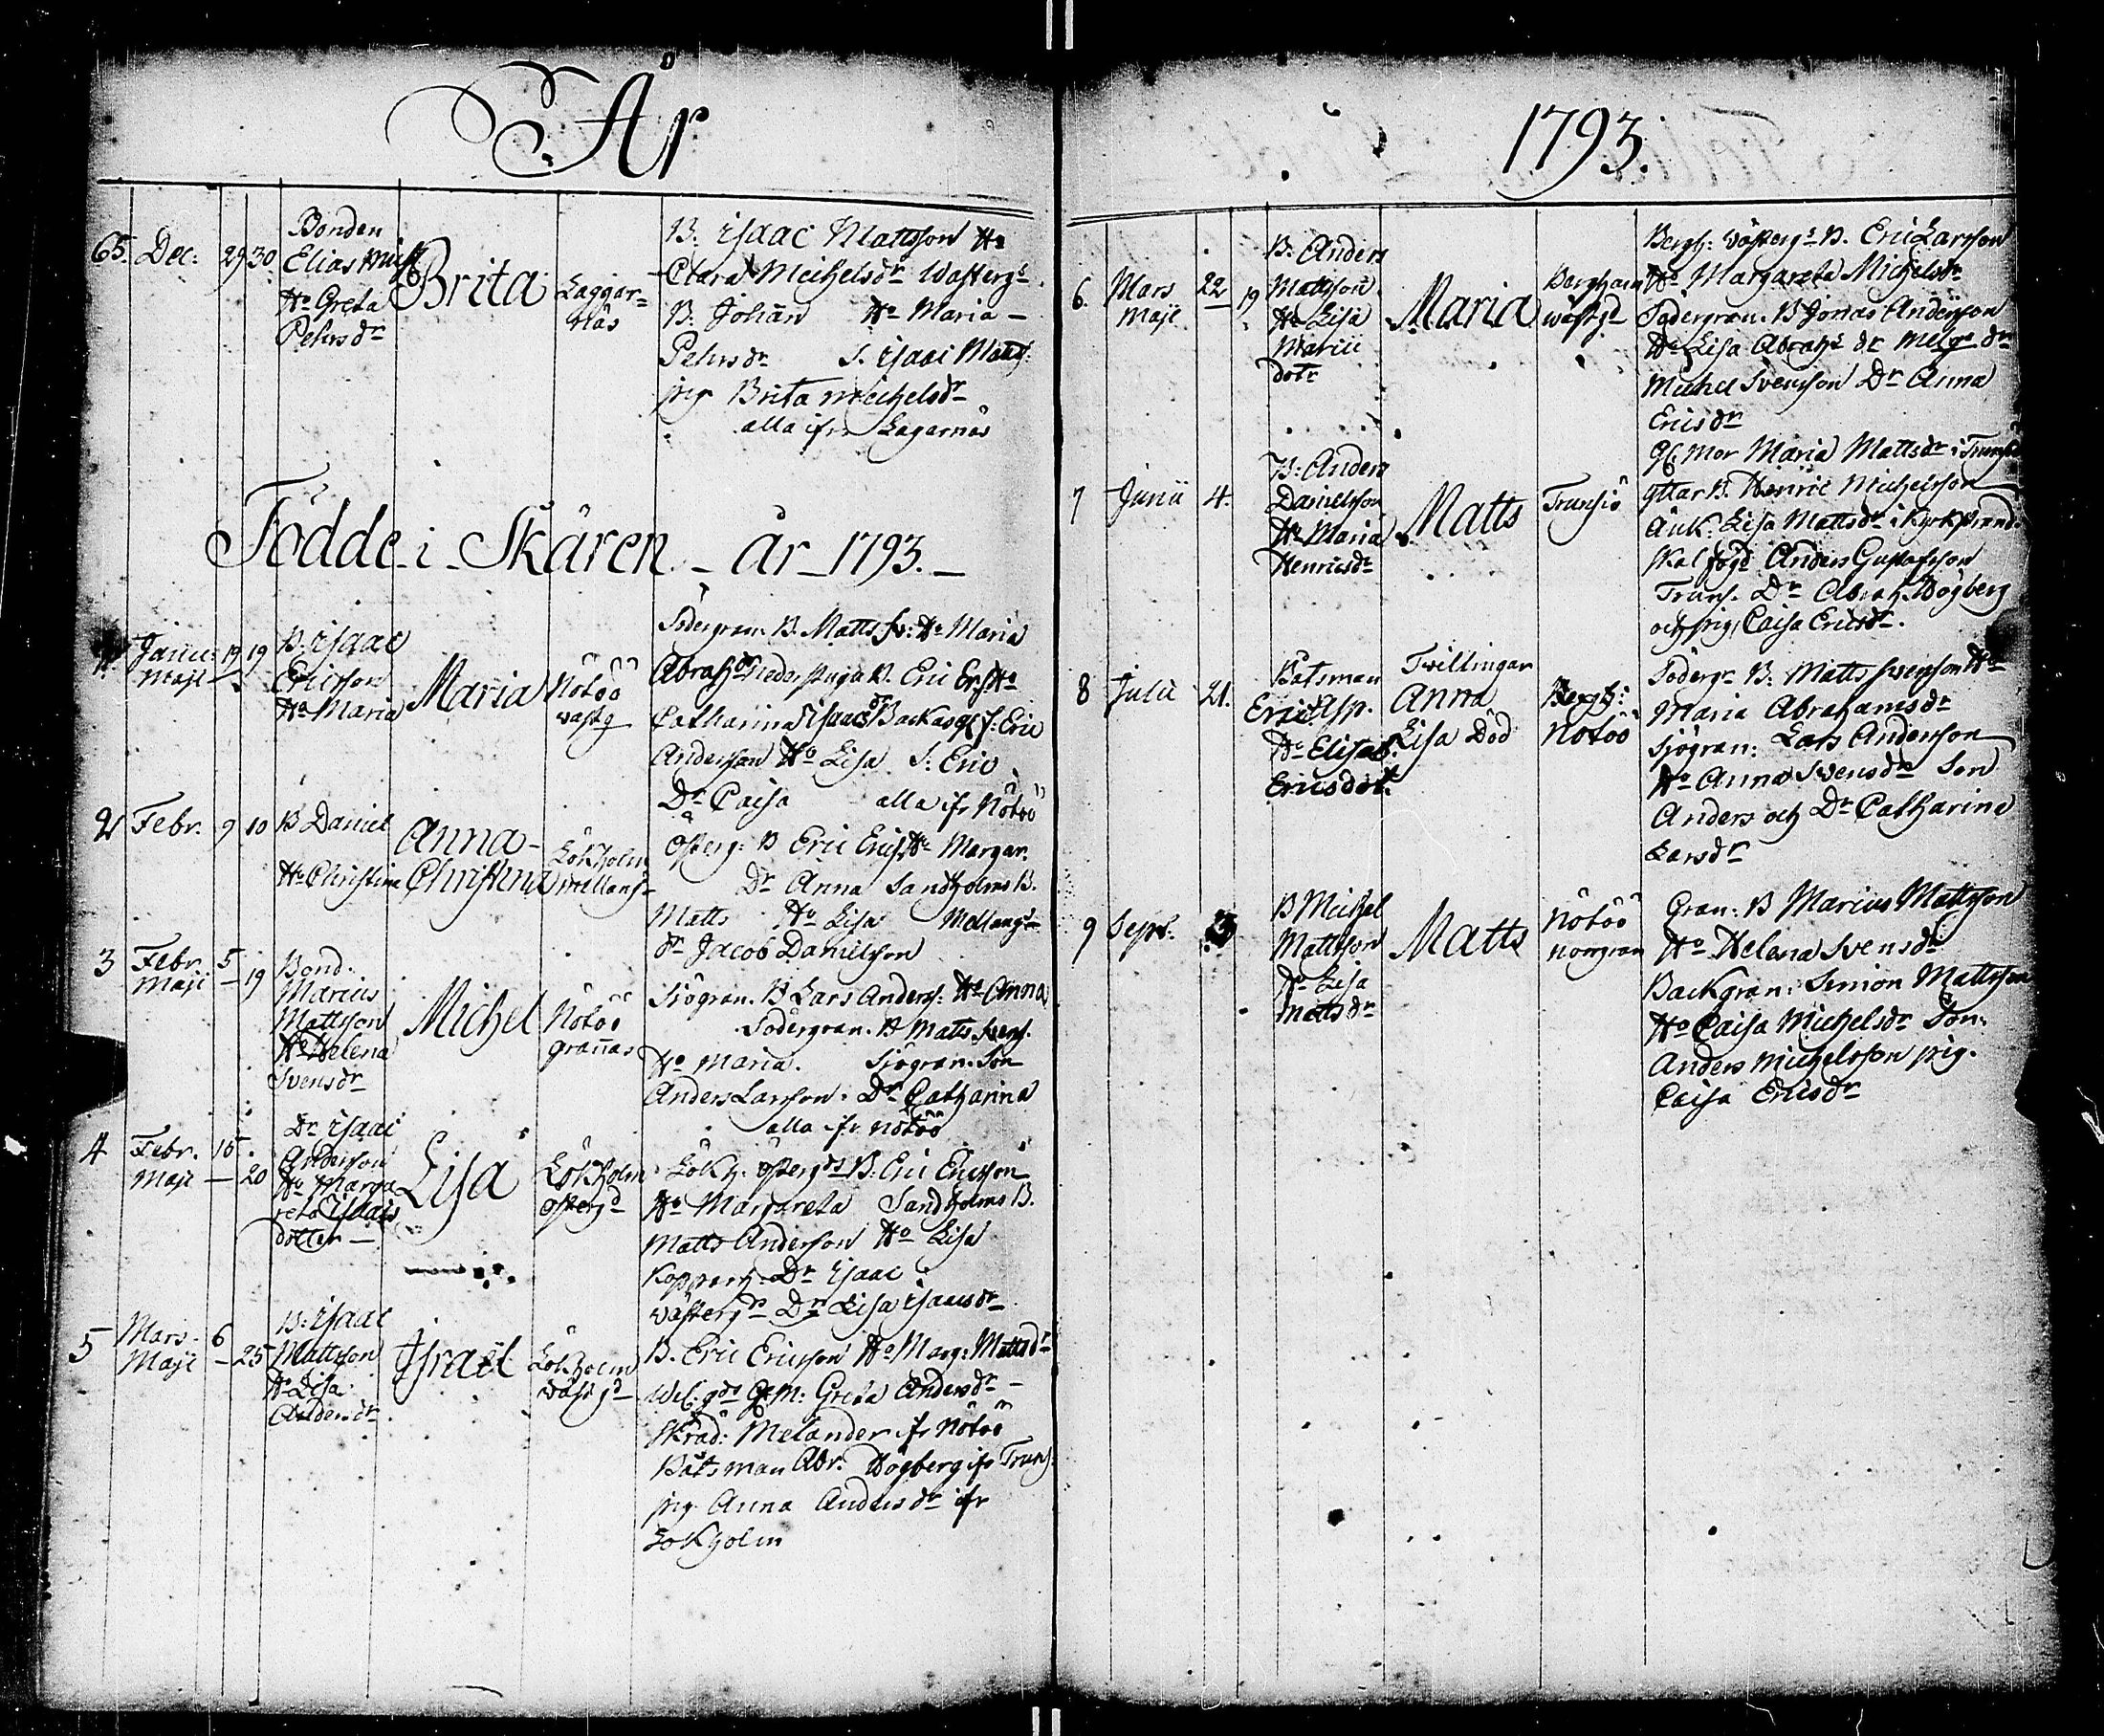 År
1793.
65. Dec: 29 30 Bonden Elias Mich Hu Greta Pehrsdr
Brita
Laggar=
näs
B: Isaac Mattsson Hu
Clara Michelsdr Wästergs
B: Johan Hu Maria –
Pehrsdr S. Isaac Matts:
pig Brita Michelsdr
alla ifrn Lagernäs
Födde i Skären – år – 1793. –
1 Janu: 19 19
Maji –
B. Isaac
Ericsson
Hu Maria
Maria
Nötöö
västg
Södergran. B. Matts Sv: Hu Maria
Abrahdr Nederstuga B. Eric Ers Hu
Catharina Isaacsdr Backas gl. S. Eric
Andersson Hu Lisa S: Eric
Dr Caisa alla ifr Nötöö
2 Febr. 9 10
B Daniel
Hu Christina
Anna –
Christina
Lökholm
mellang
Österg: B Eric Erics Hu Margar.
Dr Anna Sandholms B.
Matts Hu Lisa Mellangs
dr Jacob Danielsson
3 Febr. 5
Maji – 19
Bond.
Marius
Mattsson
Hu Helena
Svensdr
Michel
Nötöö
grannas
Siögran. B Lars Anders: Hu Anna
Södergran. B Matts Svens.
Hu Maria. Siögran. Son
Anders Larsson. Dr Catharina
alla ifr Nötöö
4 Febr. 16
Maji – 20
Dr Isaac
Andersson
Hu Marga
reta Isaacs
dotter –
Lisa
Lökholm
Östergd
Lökh: östergds B: Eric Ericsson
Hu Margareta Sandholms B.
Matts Andersson Hu Lisa
Kopparh: Dr Isaac
västergs Dr Lisa Isaacsdr
5 Mars. 6
Maji – 25
B: Isaac
Mattsson
Hu Lisa
Andersdr
Israel
Lökholm
västgd
B. Eric Ericsson Hu Marg: Mattsdr
gds Gl. M: Greta Andersdr –
Skräd: Melander ifr Nötöö
Båtsman Abr: Högberg ifr Truns:
pig Anna Andersdr ifr
Lökholm
6. Mars 22
Maji – 19
B. Anders
Mattsson
Hu Lisa
Marii
dotr
Maria
Bergham
wästgd
Bergh: västergs B. Eric Larsson
Hu Margareta Michelsdr
Södergran. B Jonas Andersson
Hu Lisa Abrahs dr Melgs dr
Michel Svensson Dr Anna
Ericsdr
7 Junii 4.
B: Anders
Danielsson
Hu Maria
Henricsdr
Matts
Trunsiö
Gl. mor Maria Mattsdr i Trunsiö
yttar B. Henric Michelsson
Änk: Lisa Mattsdr i Kyrkstrand
Skal fogd Anders Gustafsson
Truns. Dr Abrah. Högberg
och pig. Caisa Ericsdr.
8 Julii 21.
Båtsman
Eric Asp.
Hu Elisab.
Ericsdot.
Twillingar
Anna
Lisa Död
Bergh:
Nötöö
Södergr B: Matts Svensson Hu
Maria Abrahamsdr
Siögran: Lars Andersson
Hu Anna Svensdr Son
Anders och Dr Catharina
Larsdr
9 Sept.
B Michel
Mattsson
Hu Lisa
Mattsdr
Matts
Nötöö
norrgran
Gran: B Marius Mattsson
Hu Helena Svensdr
Backgran: Simon Mattsson
Hu Caisa Michelsdr Son.
Anders Michelsson pig.
Caisa Ericsdr